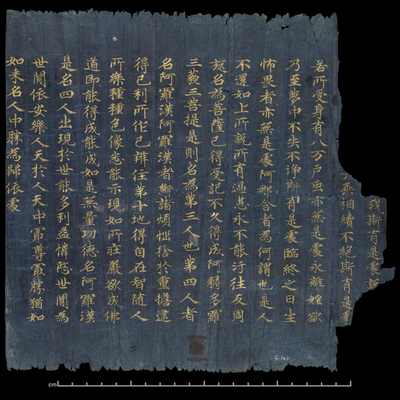 斷有是處
相續不絕斷有是處
若所受身有八万戶虫亦無是處永離婬欲
乃至夢中不失不淨斷有是處臨終之日生
怖畏者亦無是處阿那含者為何謂也是人
不還如上所說所有過患永不能汙往反周
旋名為菩薩已得受記不久得成阿耨多羅
三藐三菩提是則名為第三人也第四人者
名阿羅漢阿羅漢者斷諸煩惱捨於重擔逮
得己利所作已辦住第十地得自在智隨人
所樂種種色像悉能示現如所莊嚴欲成佛
道即能得成能成如是無量功德名阿羅漢
是名四人出現於世能多利益憐愍世間為
世間依安樂人天於人天中最尊最勝猶如
如來名人中勝為歸依處
cm